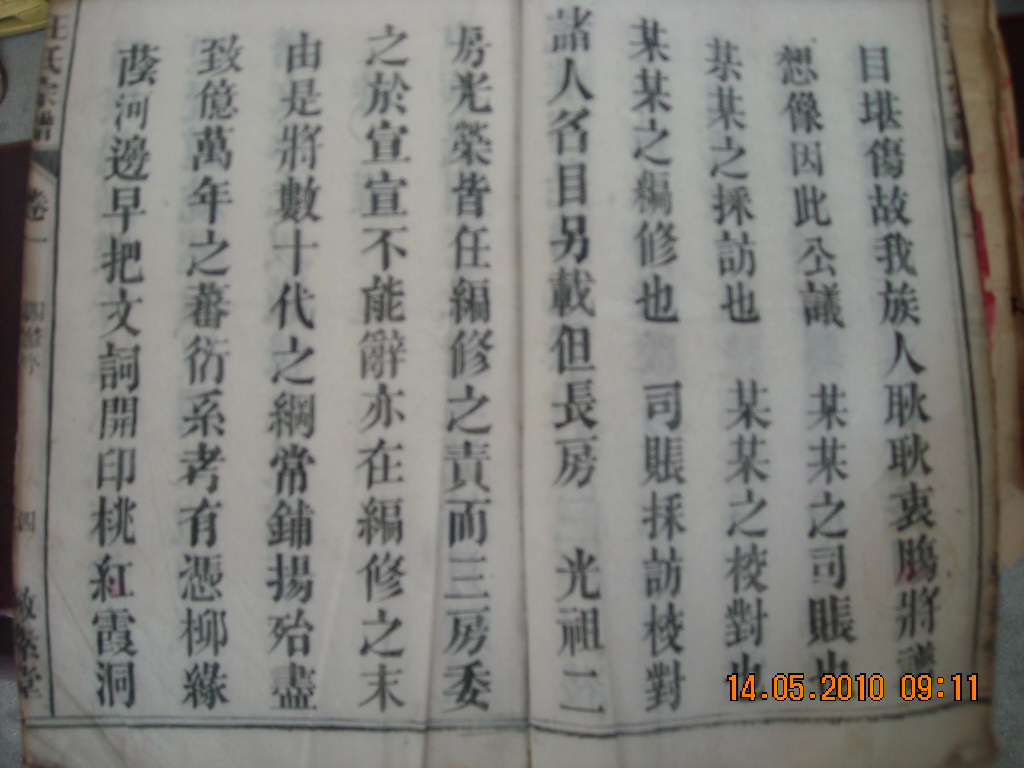 目堪傷故我族人耿耿衷膓將譜
想像因此公議 某某之司賬也
某某之採訪也 某某之校對也
某某之編修也 司賬採訪校對
諸人名目另載但長房 光祖二
房光榮皆任編修之責而三房委
之於宣宣不能辭亦在編修之末
由是將數十代之綱常鋪揚殆盡
致億萬年之蕃衍系考有憑柳緣
蔭河邊早把文詞開印桃紅霞洞
汪氏宗譜 卷一 四修 四 敬
14.05.2010 09:11